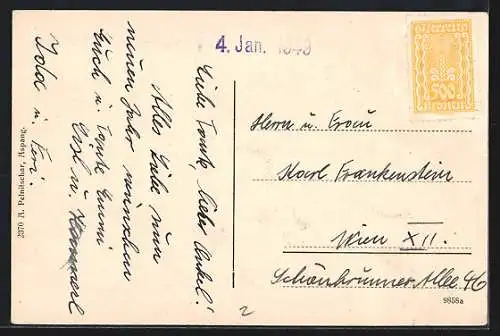 4. Jan. 1949
Österreich
500
Kronen
Liebe Tante, lieber Onkel!
Alles Liebe zum
neuen Jahr wünschen
Euch u. Tante Emma
Gest. u.
Ida u. Feri.
2370 A. Pelnitschar, Aspang.
Herrn u. Frau
Karl Frankenstein
Wien XII.
Schönbrunner Allee 46
9858a
2